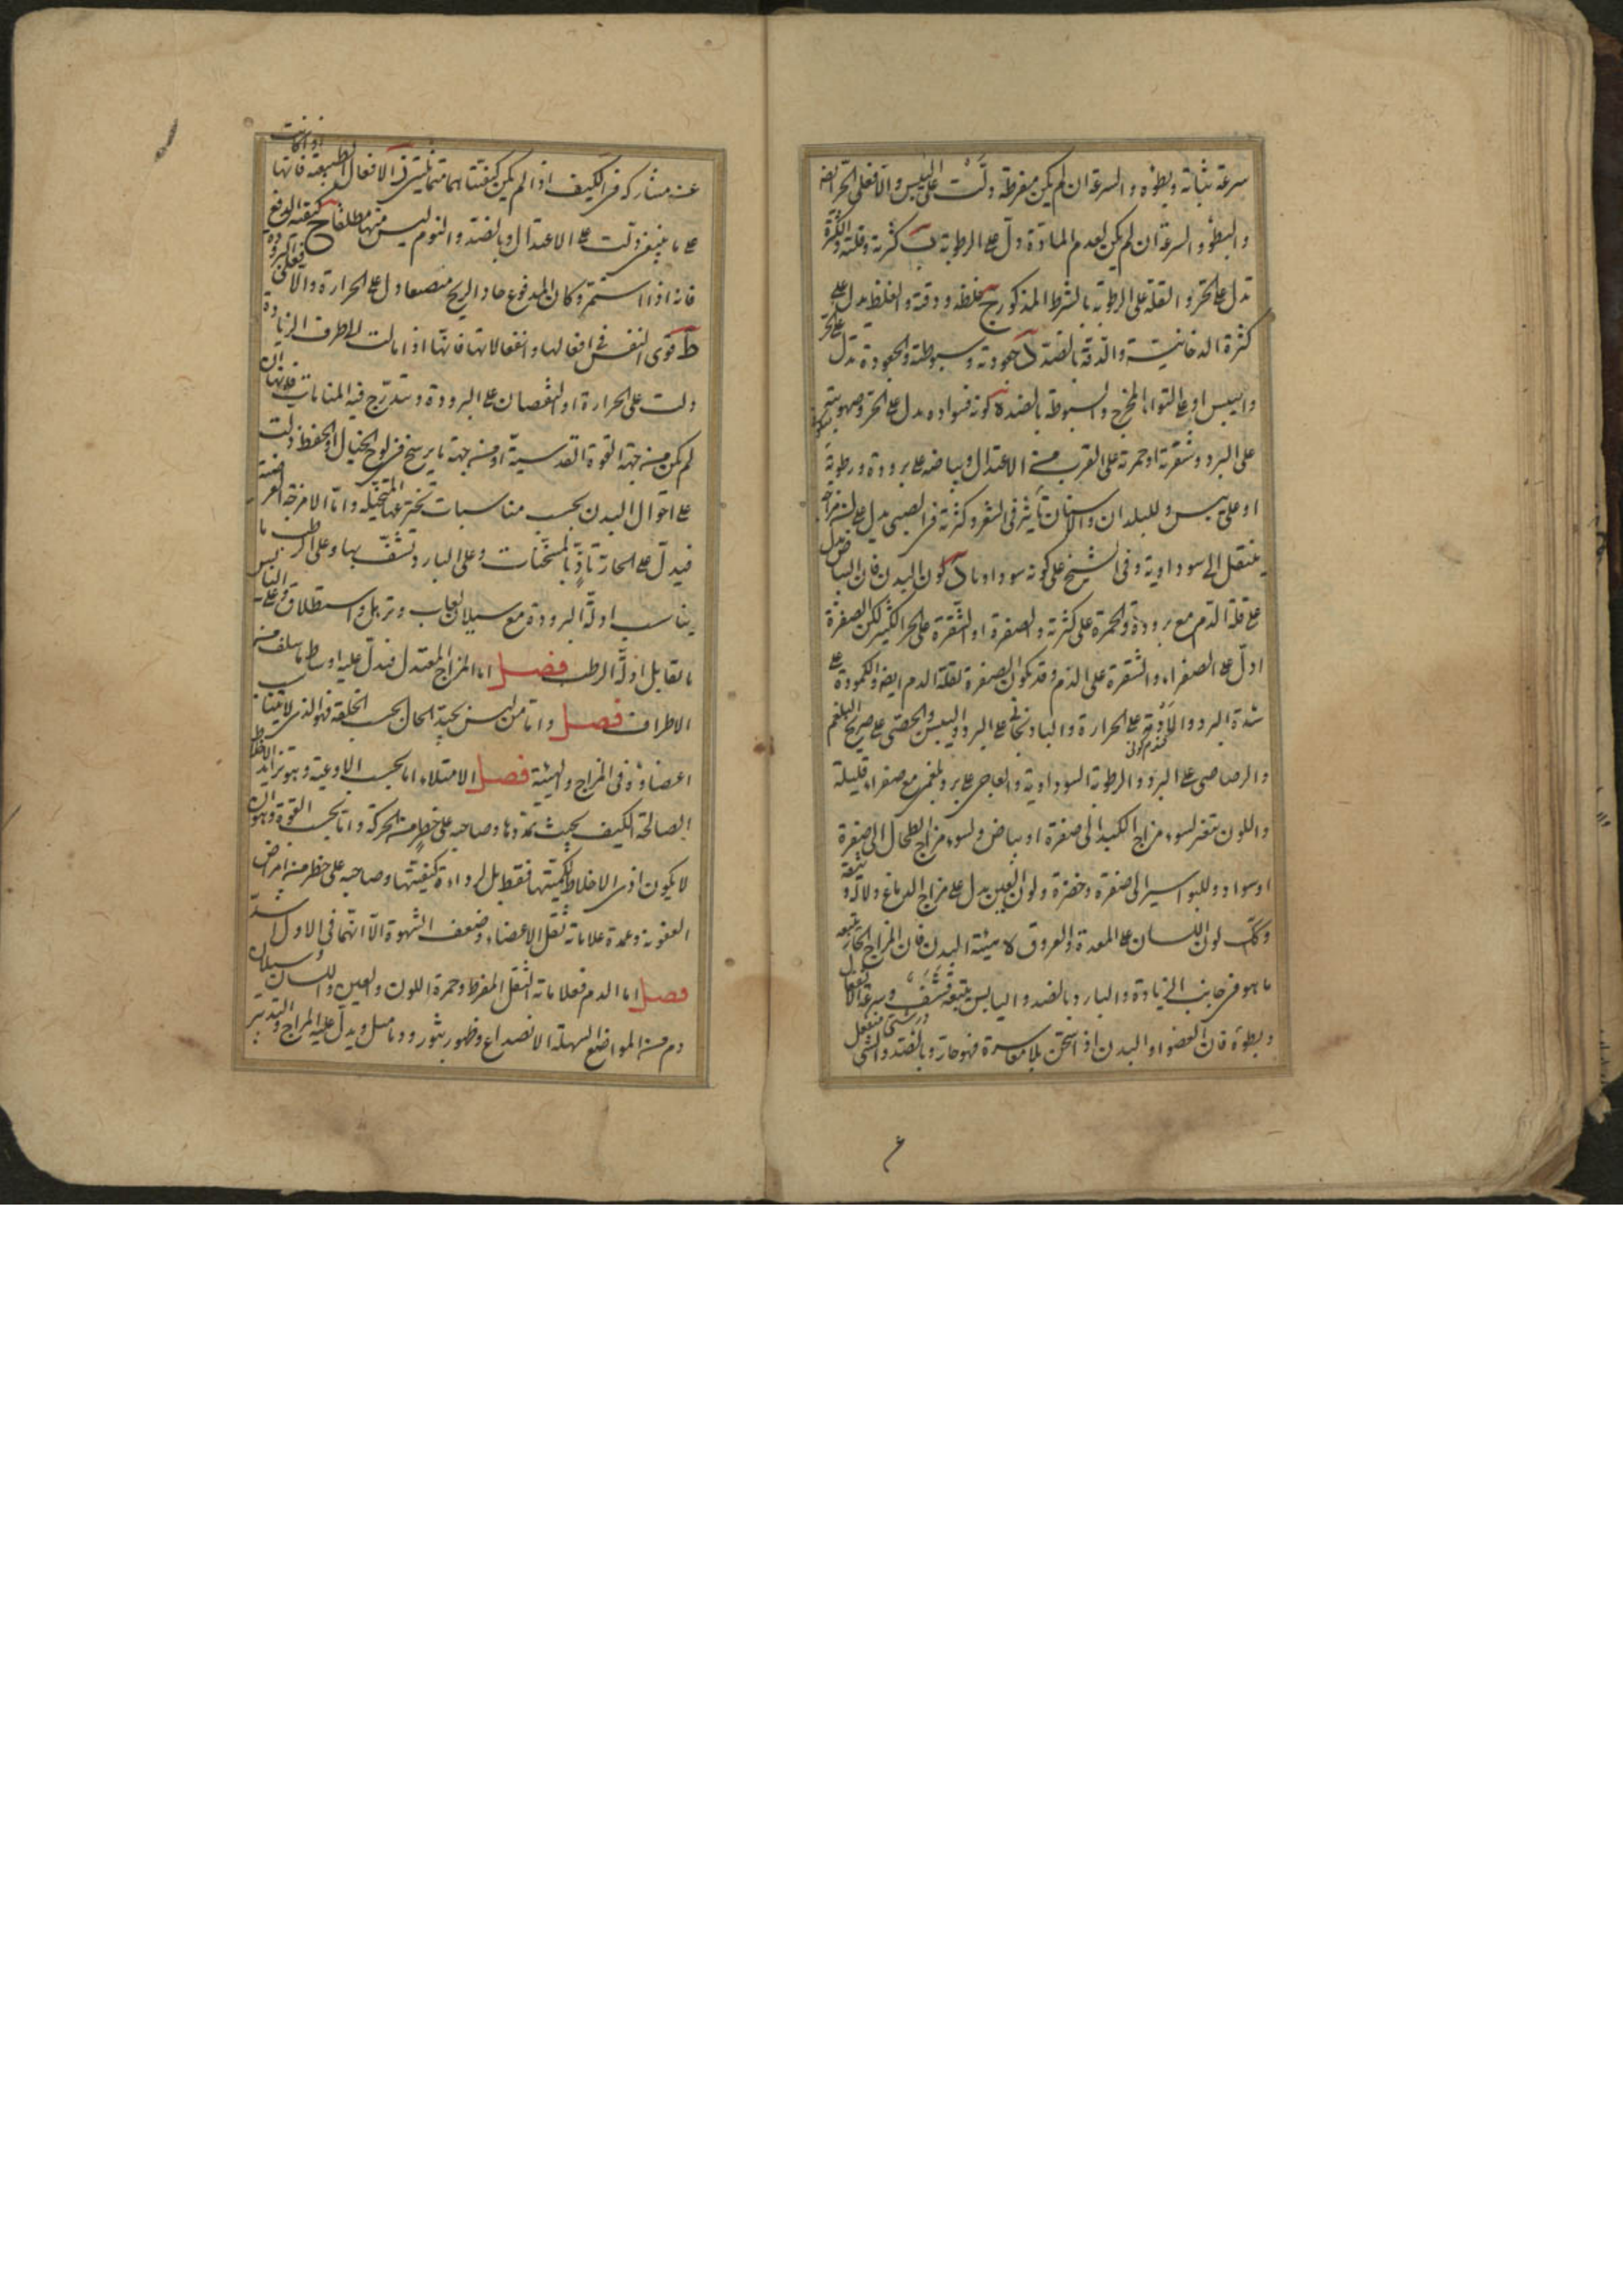 سرعة نباته وبطؤه والسرعة ان لم يكن مفرطة دلّت على اليبس والا فعلى الحر ايضا
والبطؤ والسرعة ان لم يكن لعدم المادّة دلّ على الرطوبة ب كثرته وقلته والكثرة
تدل على الحر والقلة على الرطوبة بالشرط المذكور ج غلظه ودقته والغلظ يدل على
كثرة الدخانية والدقة بالضد د جعودته وسبوطته والجعودة تدل على الحر
واليبس او على التواء المخرج والسبوطة بالضد ه لونه فسواده يدل على الحر وصهوبته
على البرد وشقرته او حمرته على القرب من الاعتدال وبياضه على برودة ورطوبة
او على يبس وللبلدان والاسنان تأثير في الشعر وكثرته في الصبى يدل على ان مزاجه
ينتقل الى سوداوية وفى الشيخ على كونه سوداويا د لون البدن فان البياض يدل
على قلة الدم مع برودة والحمرة على كثرته والصفرة او الشقرة على الحر الكثير لكن الصفرة
ادلّ على الصفراء والشقرة على الدم وقد تكون الصفرة لقلة الدم ايضا والكمودة على
شدة البرد والأدمة على الحرارة والباذنجانى على البرد واليبس والجصى على صريح البلغم
والرصاصى على البرد والرطوبة السوداوية والعاجى على برد بلغمى مع صفراء قليلة
واللون يتغير لسوء مزاج الكبد الى صفرة او بياض ولسوء مزاج الطحال الى صفرة
او سواد وللبواسير الى صفرة وخضرة ولون العين يدل على مزاج الدماغ دلالة وثيقة
وكك لون اللسان على المعدة والعروق ه هيئة البدن فان المزاج الحار يتبعه
ما هو في جانب الزيادة والبارد بالضد واليابس يتبعه قشف وسرعة الانفعال
وبطؤه فان العضو او البدن اذا سخن بلا معاسرة فهو حار وبالضد والشى
عنه مشاركه في الكيف اذا لم يكن كيفيتاهما متمانعتين ز الافعال الطبيعة فانها اذا كانت
على ما ينبغى دلت على الاعتدال وبالضد والنوم ليس منها مطلقا ح كيفية الدفع
فانه اذا استمر وكان المدفوع حاد الريح منصبغا دل على الحرارة والا فعلى البرودة
ط قوى النفس في افعالها وانفعالاتها فانها اذا مالت الى طرف الزيادة
دلت على الحرارة او النقصان على البرودة ويتدرج فيه المنامات فانها ان
لم يكن من جهة القوة القدسية او من جهة ما يرسخ في لوح الخيال او الحفظ دلت
على احوال البدن بحسب مناسبات تخترعها المتخيلة وامّا الامزجة العرضية
فيدل على الحار تأذٍ بالمسخنات وعلى البارد تشف بها وعلى الرطب ما
يناسب ادلة البرودة مع سيلان لعاب وتربل واستطلاق وعلى اليابس
ما تقابل ادلة الرطب فصل اما المزاج المعتدل فيدل عليه اوساط ما سلف من
الاطراف فصل واما من ليس بجيد الحال بحسب الخلقة فهو الذى لا يتناسب
اعضاؤه فى المزاج والهيئة فصل الامتلاء اما بحسب الاوعية وهو تزايد الاخلاط
الصالحة الكيف بحيث تمددها وصاحبه على خطر من الحركة واما بحسب القوة وهو ان
لا يكون اذى الاخلاط لكميتها فقط بل لرداءة كيفيتها وصاحبه على خطر من امراض
العفونة وعمدة علاماته ثقل الاعضاء وضعف الشهوة الا انهما فى الاول اشدّ
فصل اما الدم فعلاماته الثقل المفرط وحمرة اللون والعين واللسان وسيلان
دم من المواضع السهلة الانصداع وظهور بثور ودماميل ويدل عليه المزاج والتدبير